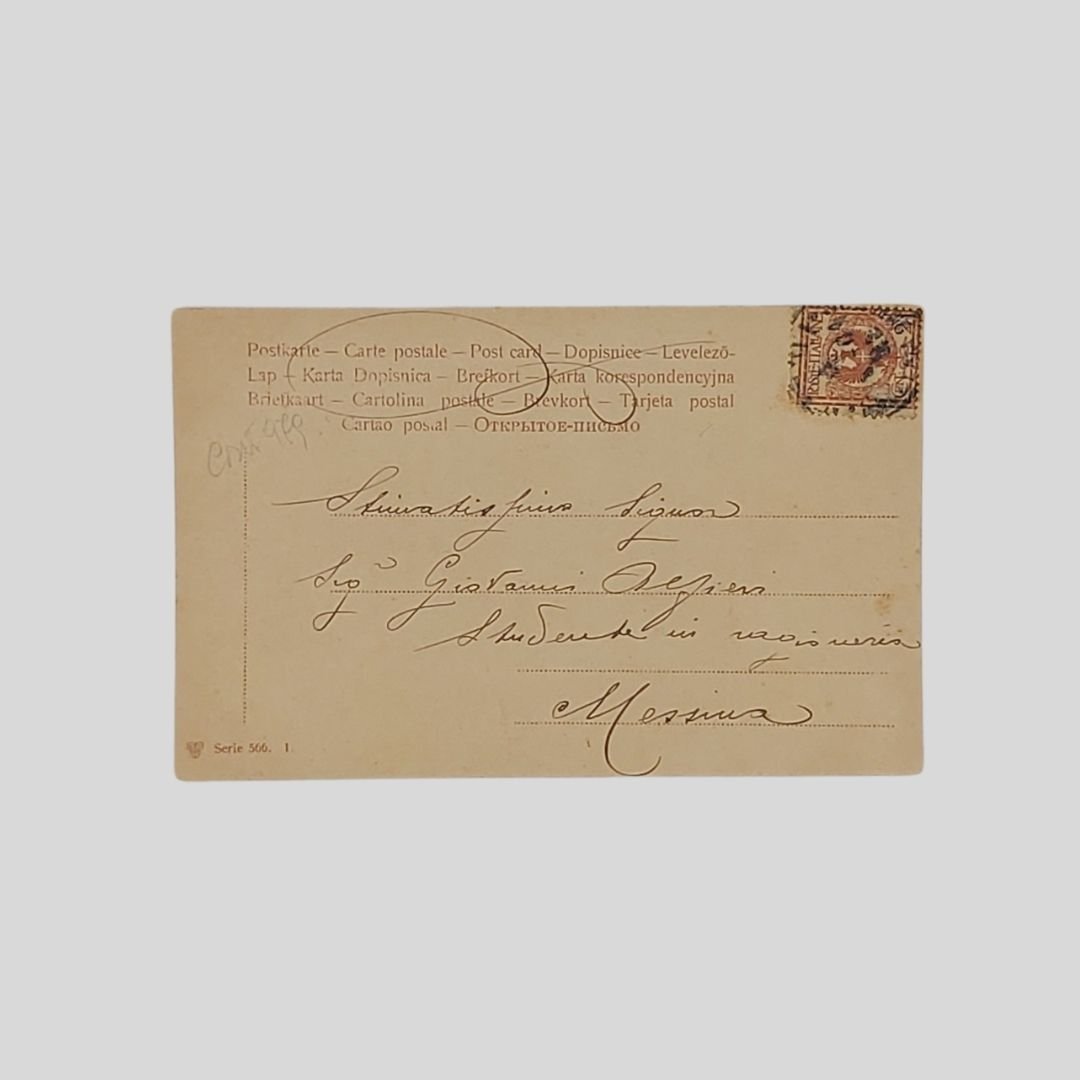 Postkarte — Carte postale — Post card — Dopisnice — Levelező-
Lap — Karta Dopisnica — Brefkort — Karta korespondencyjna
Briefkaart — Cartolina postale — Brevkort — Tarjeta postal
Cartao postal — Открытое-письмо
POSTE ITALIANE
Stimatissimo Signor
Sigr Giovanni Alfieri
Studente in ragioneria
Messina
Serie 566. 1